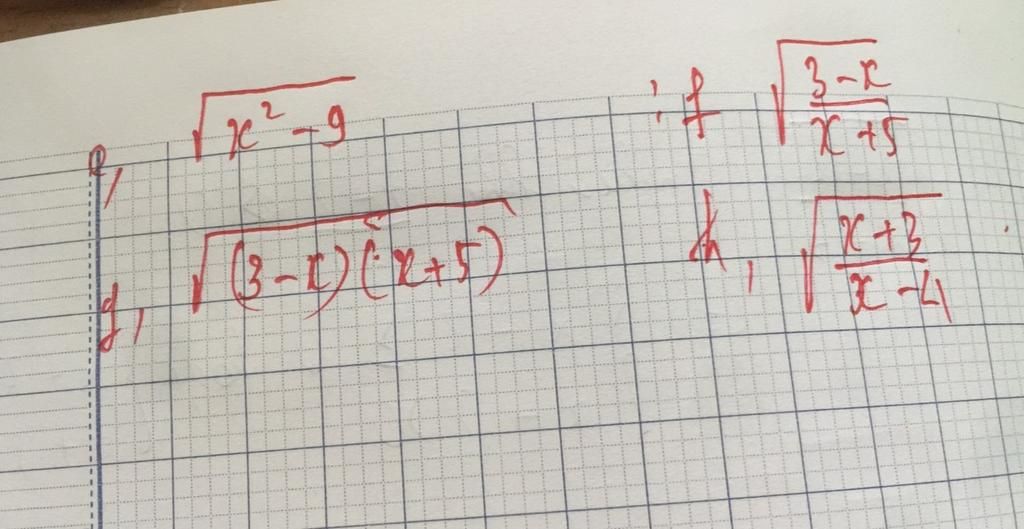 e, √(x² - 9)
f √((3 - x)/(x + 5))
g, √((3 - x)(x + 5))
h, √((x + 3)/(x - 4))